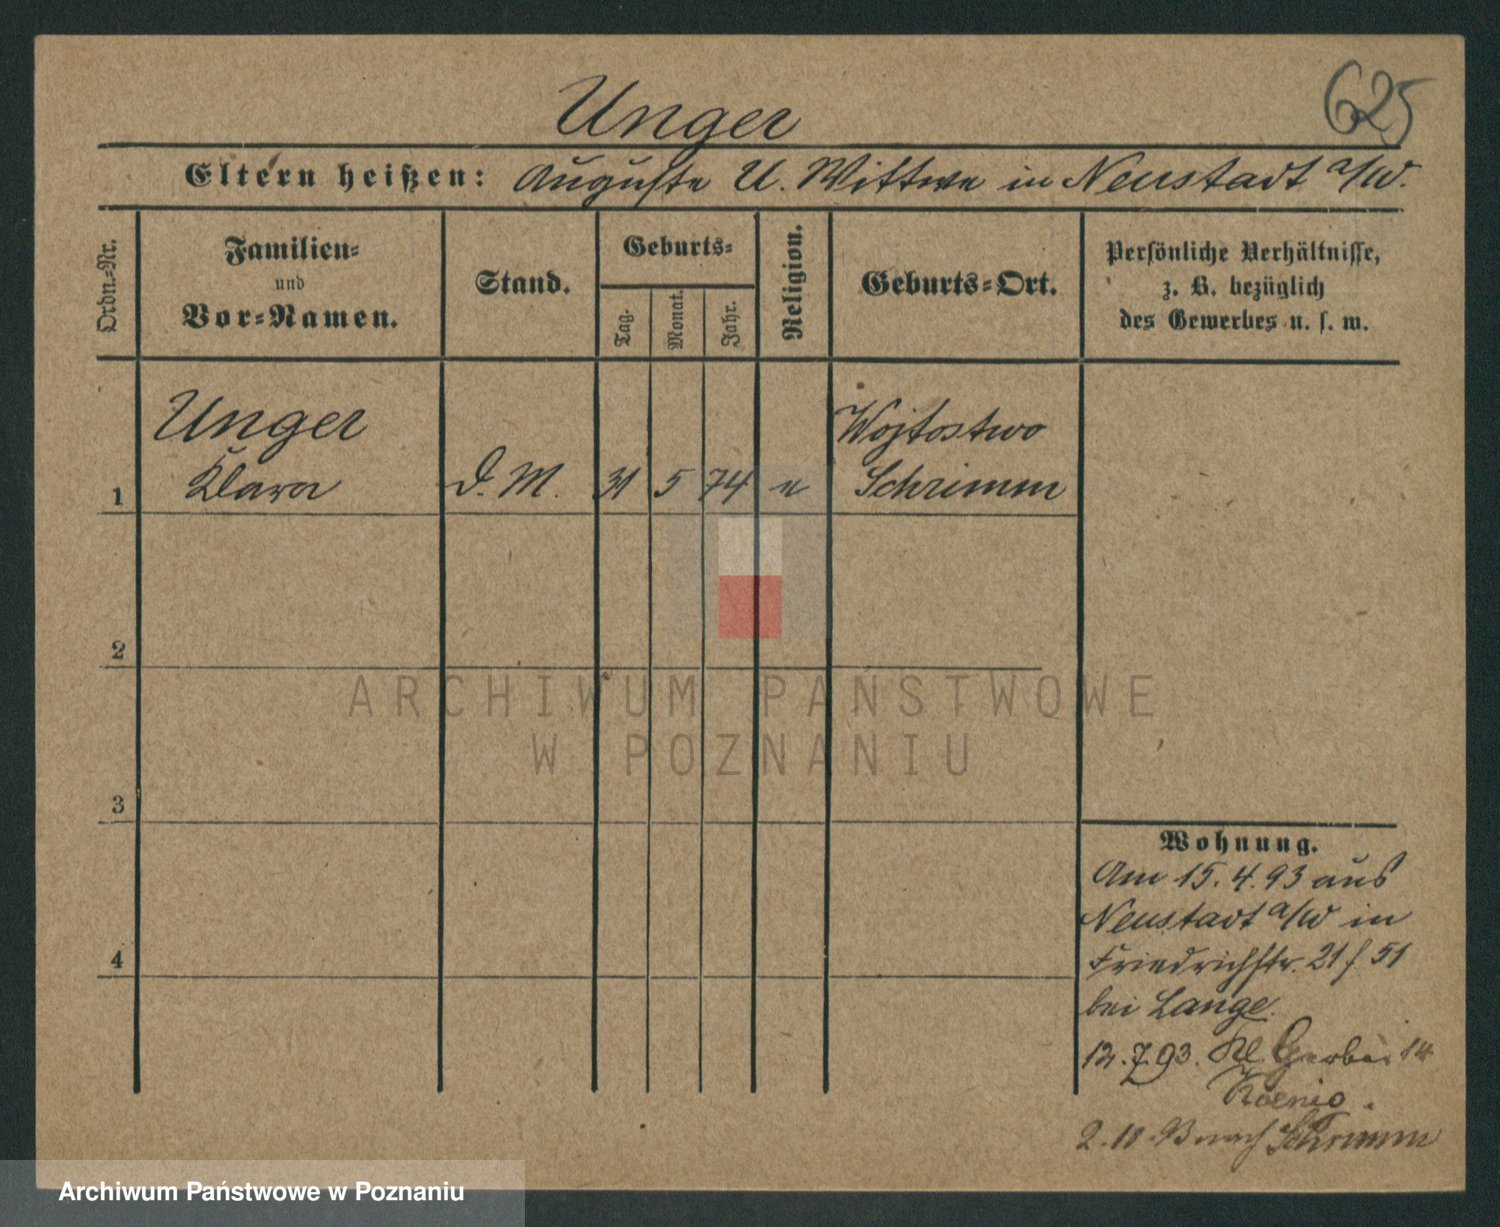 Unger
625
Eltern heißen: Auguste U. Wittwe in Neustadt a/W.
Ordn.-Nr.
Familien-
und
Vor-Namen.
Stand.
Geburts-
Tag.
Monat.
Jahr.
Religion.
Geburts-Ort.
Persönliche Verhältnisse,
z. B. bezüglich
des Gewerbes u. s. w.
Unger
Wojtostwo
1 Klara D. M. 31 5 74 Schrimm
2
ARCHIWUM PAŃSTWOWE
W POZNANIU
3
Wohnung.
Am 15.4.93 aus
Neustadt a/W in
4
Friedrichstr. 21 51
bei Lange.
12.7.93. Kl Gerber 14
Koenig.
2.10.93 nach Schrimm
Archiwum Państwowe w Poznaniu